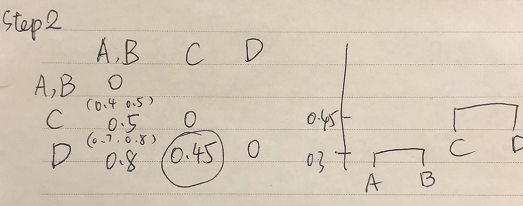 Step2
A,B C D
A,B 0
(0.4 0.5)
C 0.5 0
(0.7, 0.8)
D 0.8 0.45 0
0.45
0.3
C D
A B